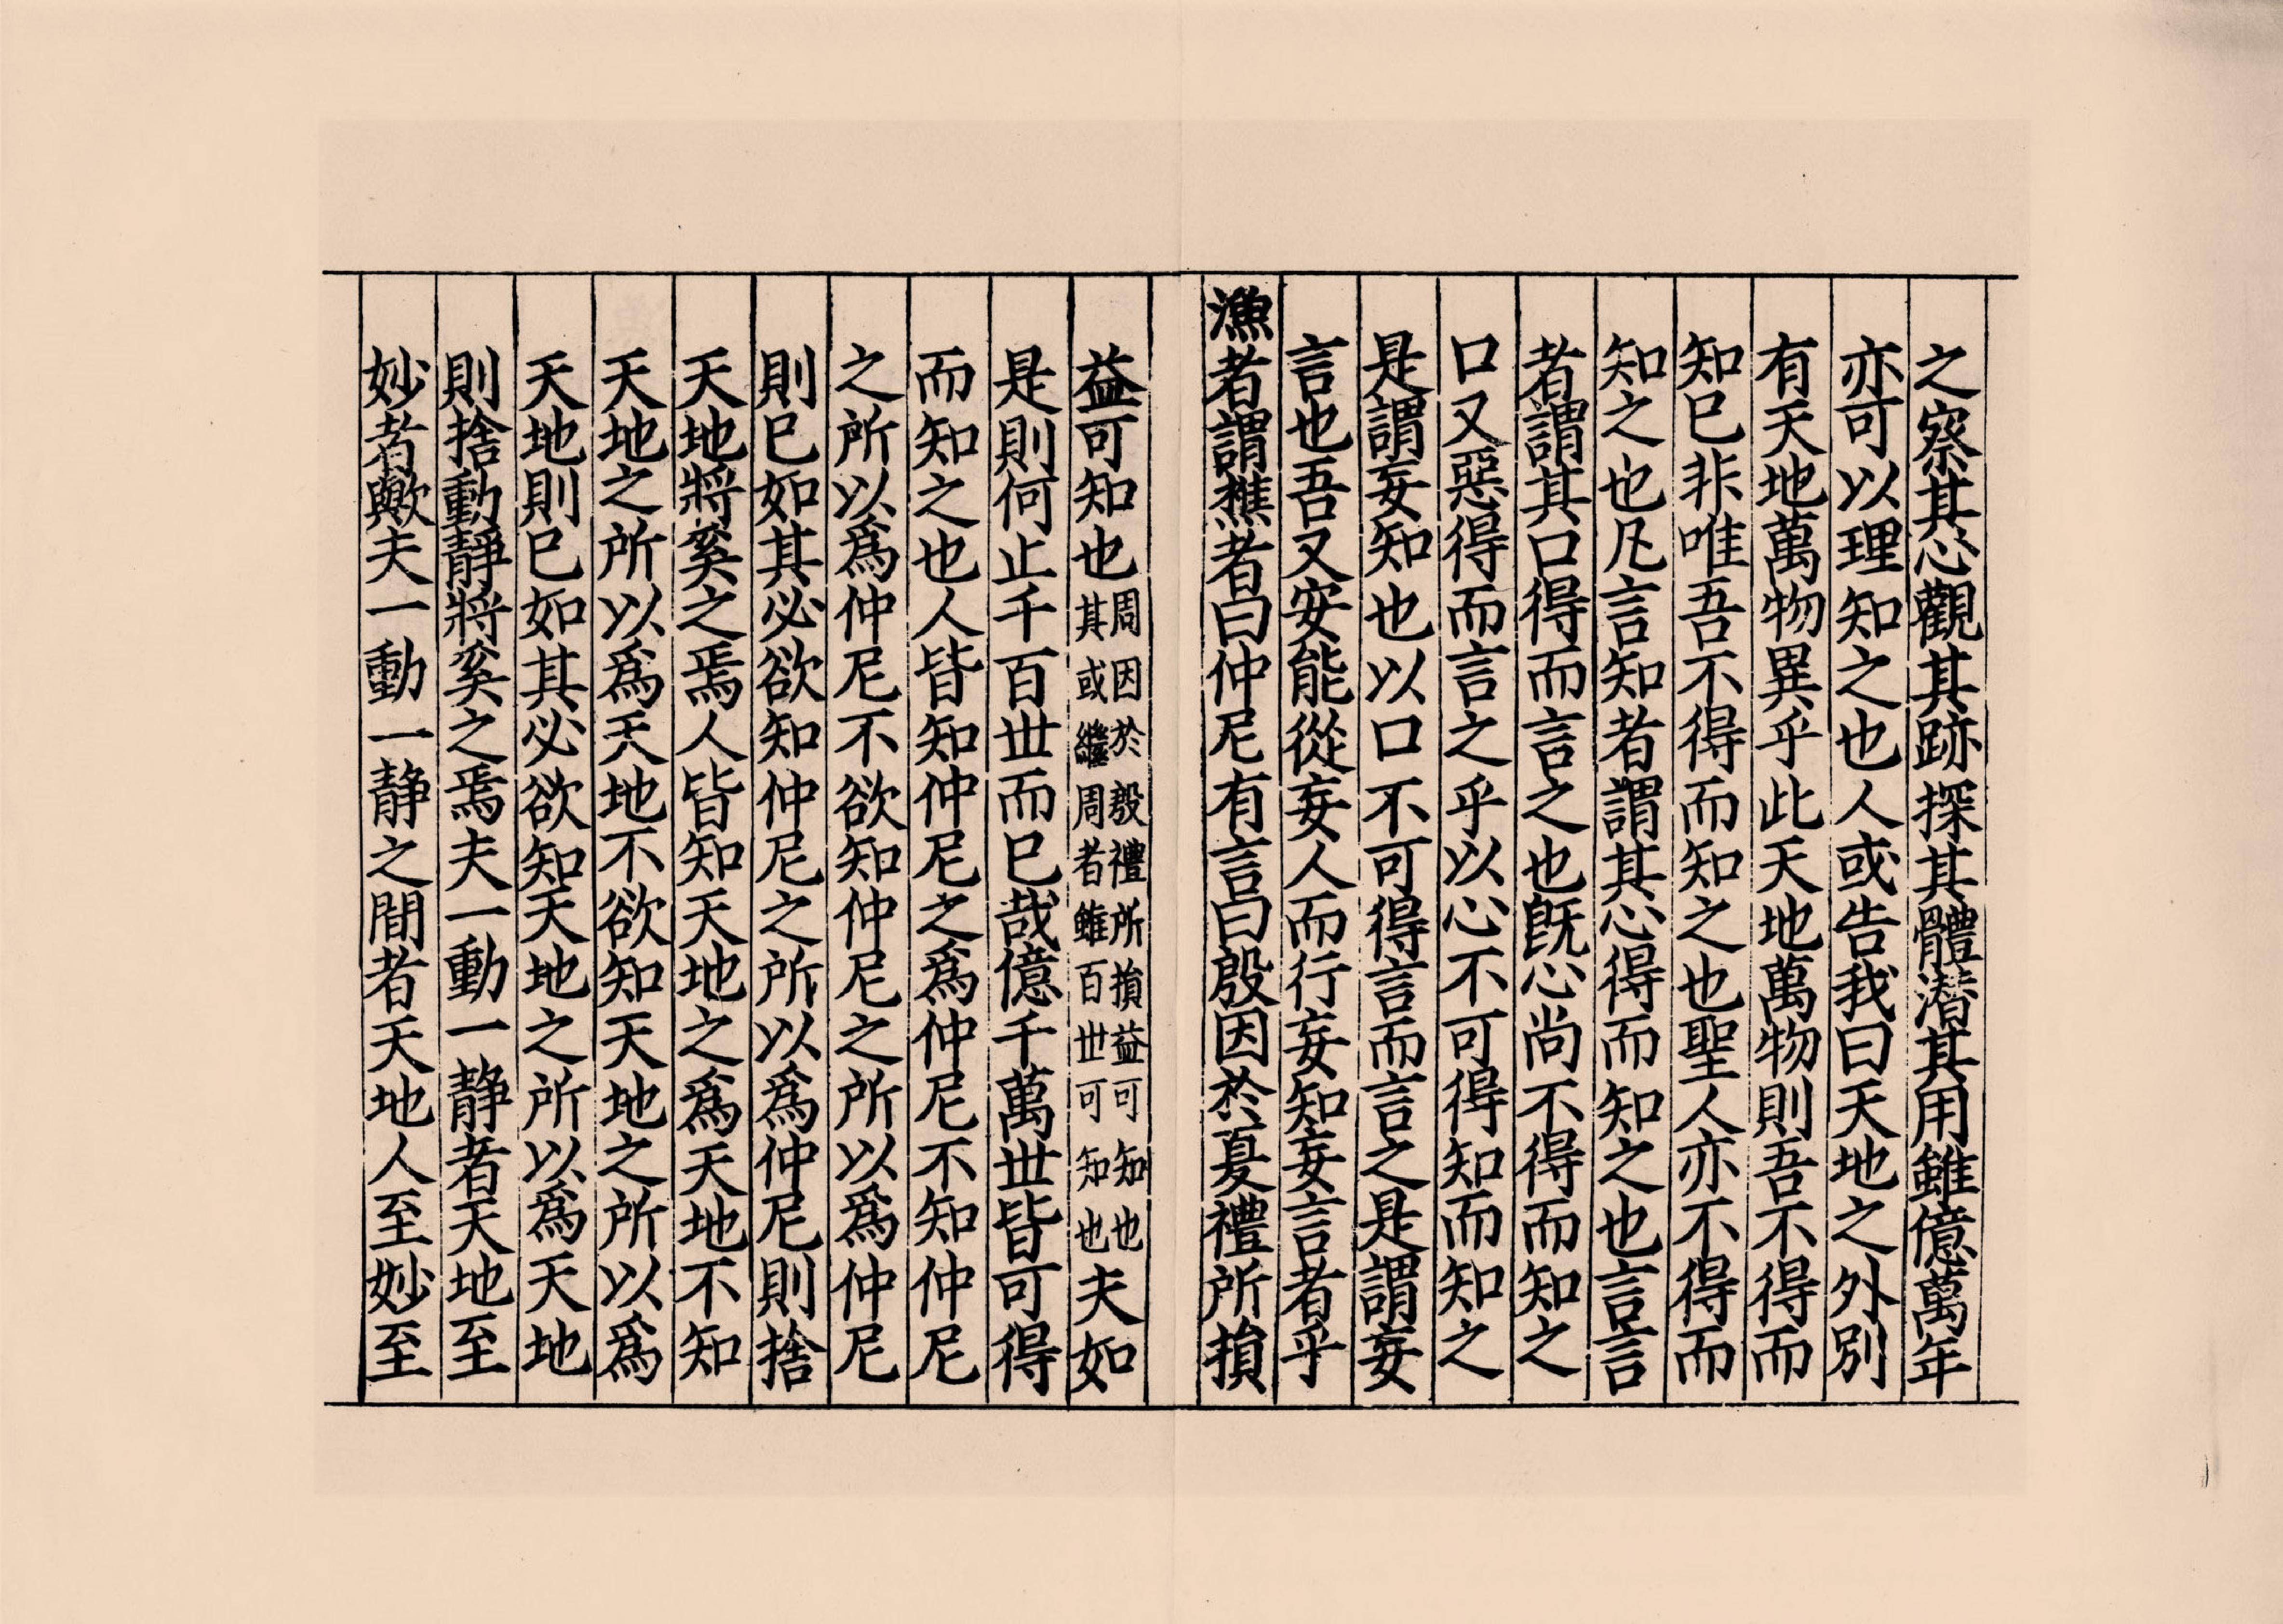 之察其心觀其跡探其體潜其用雖億萬年
亦可以理知之也人或告我曰天地之外別
有天地萬物異乎此天地萬物則吾不得而
知已非唯吾不得而知之也聖人亦不得而
知之也凡言知者謂其心得而知之也言言
者謂其口得而言之也旣心尚不得而知之
口又惡得而言之乎以心不可得知而知之
是謂妄知也以口不可得言而言之是謂妄
言也吾又安能從妄人而行妄知妄言者乎
漁者謂樵者曰仲尼有言曰殷因於夏禮所損
益可知也周因於殷禮所損益可知也其或繼周者雖百世可知也夫如
是則何止千百世而已哉億千萬世皆可得
而知之也人皆知仲尼之爲仲尼不知仲尼
之所以爲仲尼不欲知仲尼之所以爲仲尼
則已如其必欲知仲尼之所以爲仲尼則捨
天地將奚之焉人皆知天地之爲天地不知
天地之所以爲天地不欲知天地之所以爲
天地則已如其必欲知天地之所以爲天地
則捨動靜將奚之焉夫一動一静者天地至
妙者歟夫一動一静之間者天地人至妙至